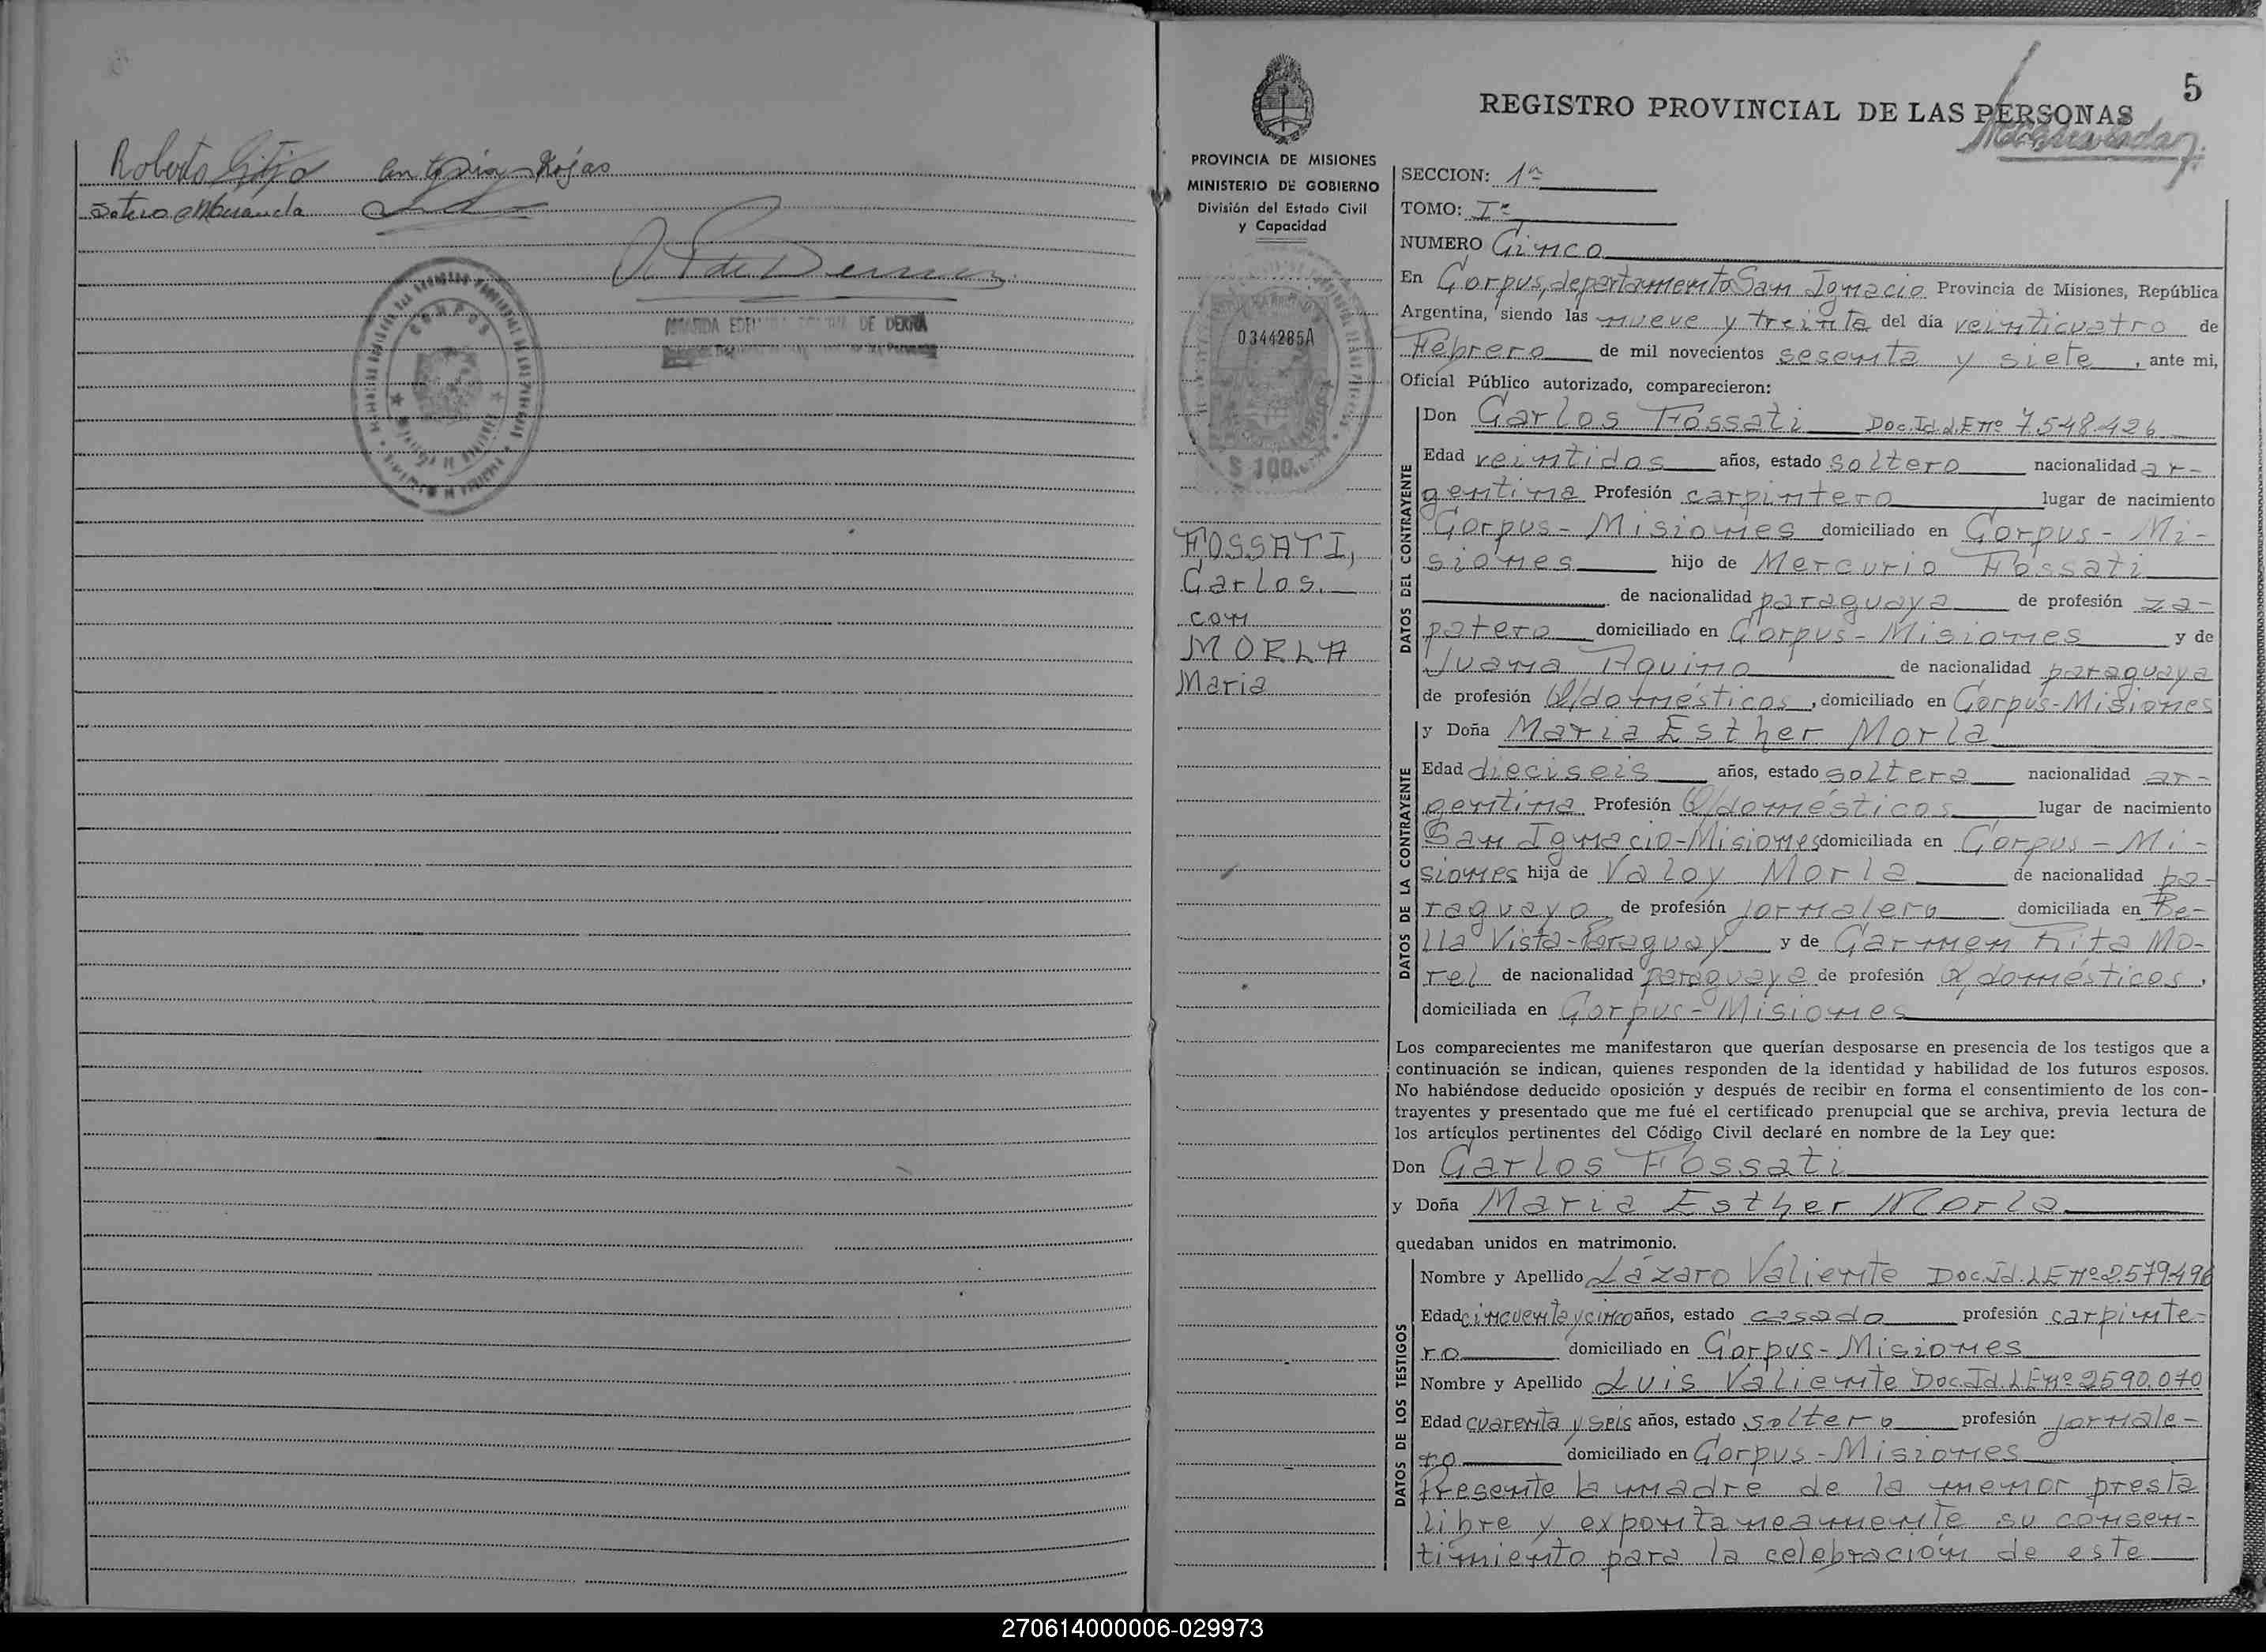 Roberto antonia Rojas
Sotero Miranda
CORPUS
DE DERNA
5
REGISTRO PROVINCIAL DE LAS PERSONAS
PROVINCIA DE MISIONES
MINISTERIO DE GOBIERNO
División del Estado Civil
y Capacidad
0344285A
$ 100
FOSSATI,
Carlos.
con
MORLA
Maria
SECCION: 1ª
TOMO: Iº
NUMERO Cinco
En Corpus, departamento San Ignacio Provincia de Misiones, República
Argentina, siendo las nueve y treinta del día veinticuatro de
Febrero de mil novecientos sesenta y siete, ante mi,
Oficial Público autorizado, comparecieron:
DATOS DEL CONTRAYENTE
Don Carlos Fossati Doc.Id.L.E nº 7.548.426
Edad veintidos años, estado soltero nacionalidad ar-
gentina Profesión carpintero lugar de nacimiento
Corpus - Misiones domiciliado en Corpus - Mi-
siones hijo de Mercurio Fossati
de nacionalidad paraguaya de profesión za-
patero domiciliado en Corpus - Misiones y de
Juana Aquino de nacionalidad paraguaya
de profesión Q/domésticos, domiciliado en Corpus-Misiones
DATOS DE LA CONTRAYENTE
y Doña Maria Esther Morla
Edad dieciseis años, estado soltera nacionalidad ar-
gentina Profesión Q/domésticos lugar de nacimiento
San Ignacio-Misiones domiciliada en Corpus - Mi-
siones hija de Valoy Morla de nacionalidad pa-
raguayo de profesión jornalero domiciliada en Be-
lla Vista-Paraguay y de Carmen Rita Mo-
rel de nacionalidad paraguaya de profesión Q/domésticos,
domiciliada en Corpus - Misiones
Los comparecientes me manifestaron que querían desposarse en presencia de los testigos que a
continuación se indican, quienes responden de la identidad y habilidad de los futuros esposos.
No habiéndose deducido oposición y después de recibir en forma el consentimiento de los con-
trayentes y presentado que me fué el certificado prenupcial que se archiva, previa lectura de
los artículos pertinentes del Código Civil declaré en nombre de la Ley que:
Don Carlos Fossati
y Doña Maria Esther Morla
quedaban unidos en matrimonio.
DATOS DE LOS TESTIGOS
Nombre y Apellido Lázaro Valiente Doc.Id.L.E nº 2.579.496
Edad cincuenta y cinco años, estado casado profesión carpinte-
ro domiciliado en Corpus - Misiones
Nombre y Apellido Luis Valiente Doc.Id.L.E nº 2590.070
Edad cuarenta y seis años, estado soltero profesión jornale-
ro domiciliado en Corpus - Misiones
Presente la madre de la menor presta
libre y expontaneamente su consen-
timiento para la celebración de este
270614000006-029973